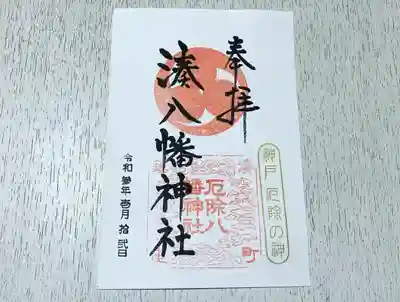 奉拝
湊八幡神社
厄除八
幡神社
神戸 厄除の神
令和参年壱月拾弐日